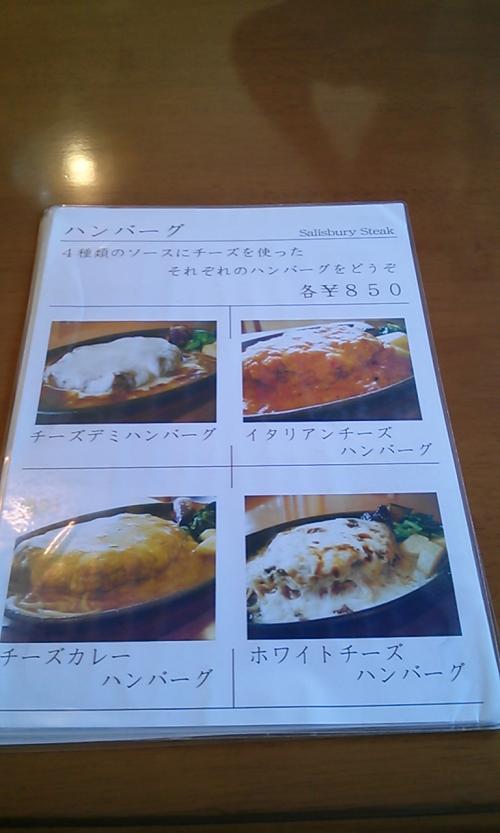 ハンバーグ
Salisbury Steak
４種類のソースにチーズを使った
それぞれのハンバーグをどうぞ
各￥８５０
チーズデミハンバーグ
イタリアンチーズ
ハンバーグ
チーズカレー
ハンバーグ
ホワイトチーズ
ハンバーグ